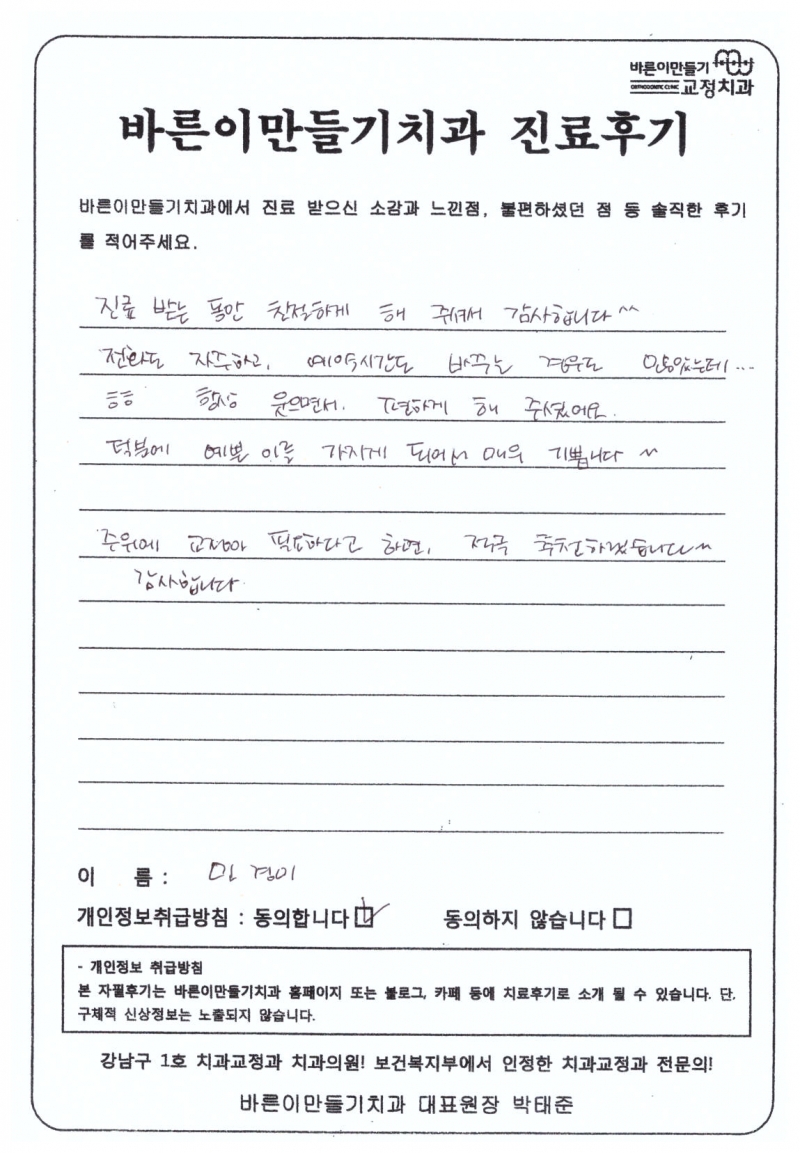 바른이만들기
ORTHODONTIC CLINIC 교정치과
바른이만들기치과 진료후기
바른이만들기치과에서 진료 받으신 소감과 느낀점, 불편하셨던 점 등 솔직한 후기
를 적어주세요.
진료 받는 동안 친절하게 해 주셔서 감사합니다^^
전화도 자주하고, 예약시간도 바꾸는 경우도 많았는데...
항상 웃으면서. 편하게 해 주셨어요.
덕분에 예쁜 이를 가지게 되어서 매우 기쁩니다 ^^
주위에 교정이 필요하다고 하면, 적극 추천하겠습니다^^
감사합니다
이 름 : 민 경미
개인정보취급방침 : 동의합니다 동의하지 않습니다
- 개인정보 취급방침
본 자필후기는 바른이만들기치과 홈페이지 또는 블로그, 카페 등에 치료후기로 소개 될 수 있습니다. 단,
구체적 신상정보는 노출되지 않습니다.
강남구 1호 치과교정과 치과의원! 보건복지부에서 인정한 치과교정과 전문의!
바른이만들기치과 대표원장 박태준